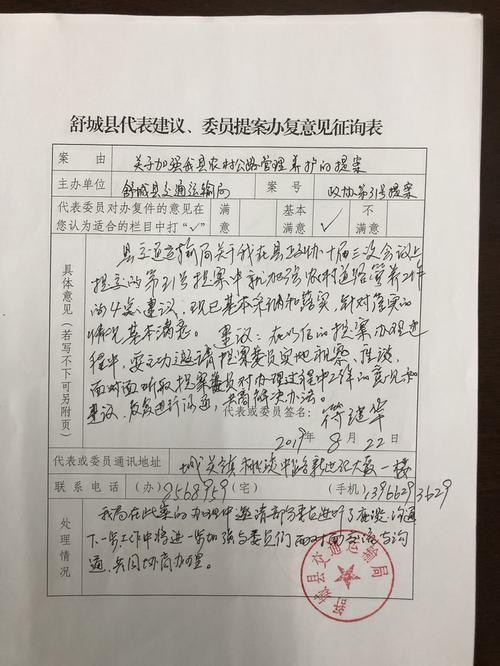 舒城县代表建议、委员提案办复意见征询表
案 由 关于加强我县农村公路管理养护的提案
主办单位 舒城县交通运输局 案 号 政协第31号提案
代表委员对办复件的意见在您认为适合的栏目中打“√” 满意 基本满意 √ 不满意
具体意见（若写不下可另附页）
县交通运输局关于我在县政协十届三次会议上
提交的第31号提案中就加强农村道路管养工作
的4点建议，现已基本采纳和落实，针对落实的
情况基本满意。 建议：在以后的提案办理过
程中，要主动邀请提案委员实地视察、座谈，
面对面听取提案委员对办理过程中工作的意见和
建议，反复进行沟通，共商解决办法。
代表或委员签名：符继华
2019年8月22日
代表或委员通讯地址 城关镇桃溪中路新世纪大厦一楼
联系电话 （办）8568959（宅） （手机）13966293629
处理情况
我局在此案的办理中邀请部分委员进行了座谈沟通
下一步工作中将进一步加强与委员们面对面交流与沟
通，共同协商办理。
舒城县交通运输局